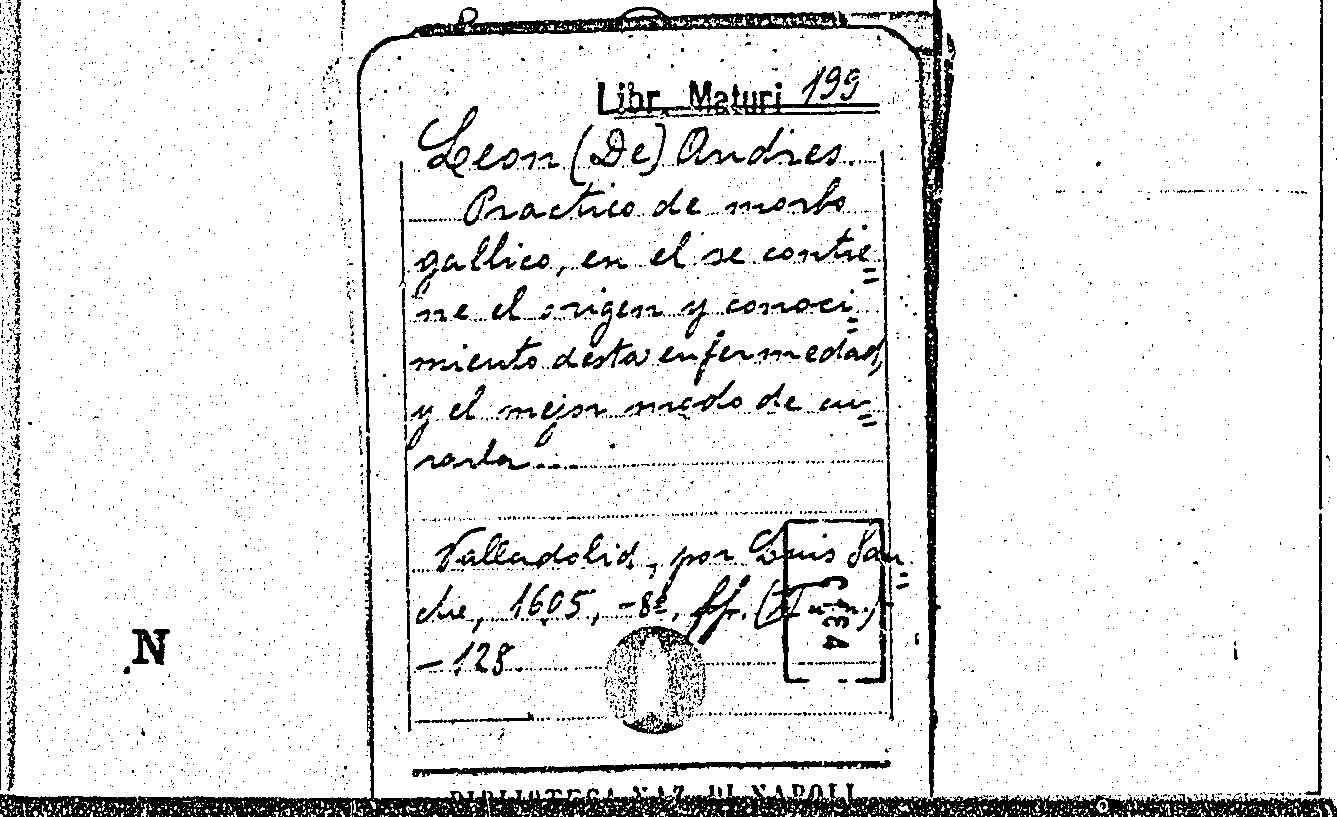 Libr. Maturi 199
Leon (De) Andres.
Practico de morbo
gallico, en el se contie=
ne el origen y conoci=
miento desta enfermedad,
y el mejor modo de cu=
rarla....
Valladolid, por Luis San=
che, 1605, -8º, ff.
-128.
N
BIBLIOTECA NAZ. DI NAPOLI